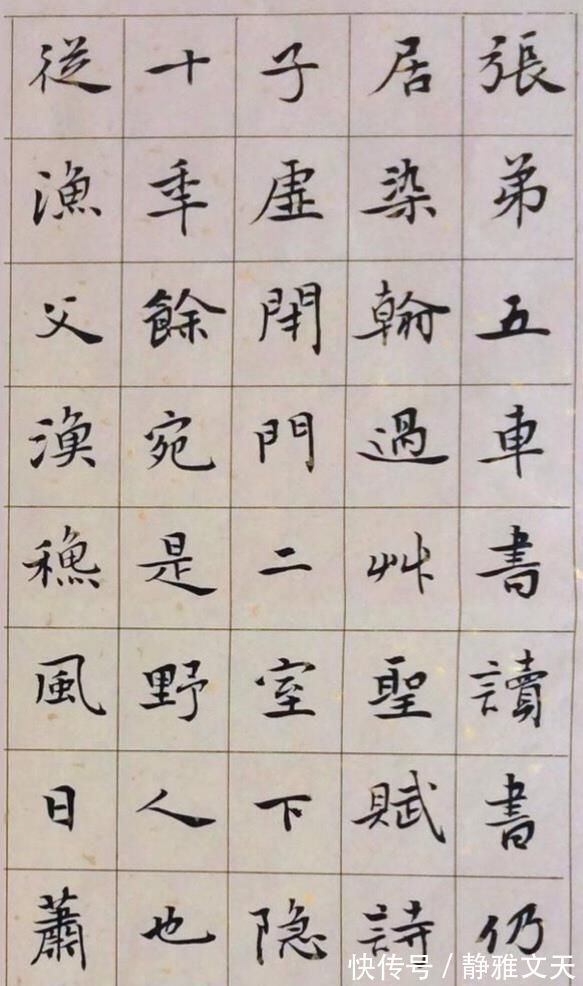 張弟五車書讀書仍
居染翰過艸聖賦詩
子虛閉門二室下隐
十秊餘宛是野人也
從漁父漁穐風日蕭
快传号/静雅文天